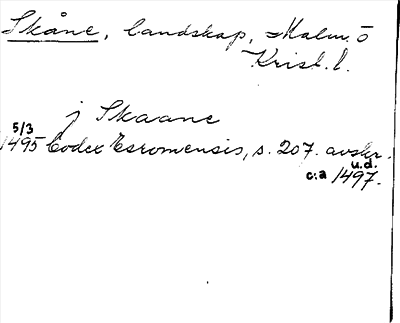 Skåne, landskap, Malm. ö
Krist. l.
j Skaane
5/3
1495 Codex Esromensis, s. 207. avskr.
u.d.
c:a 1497.